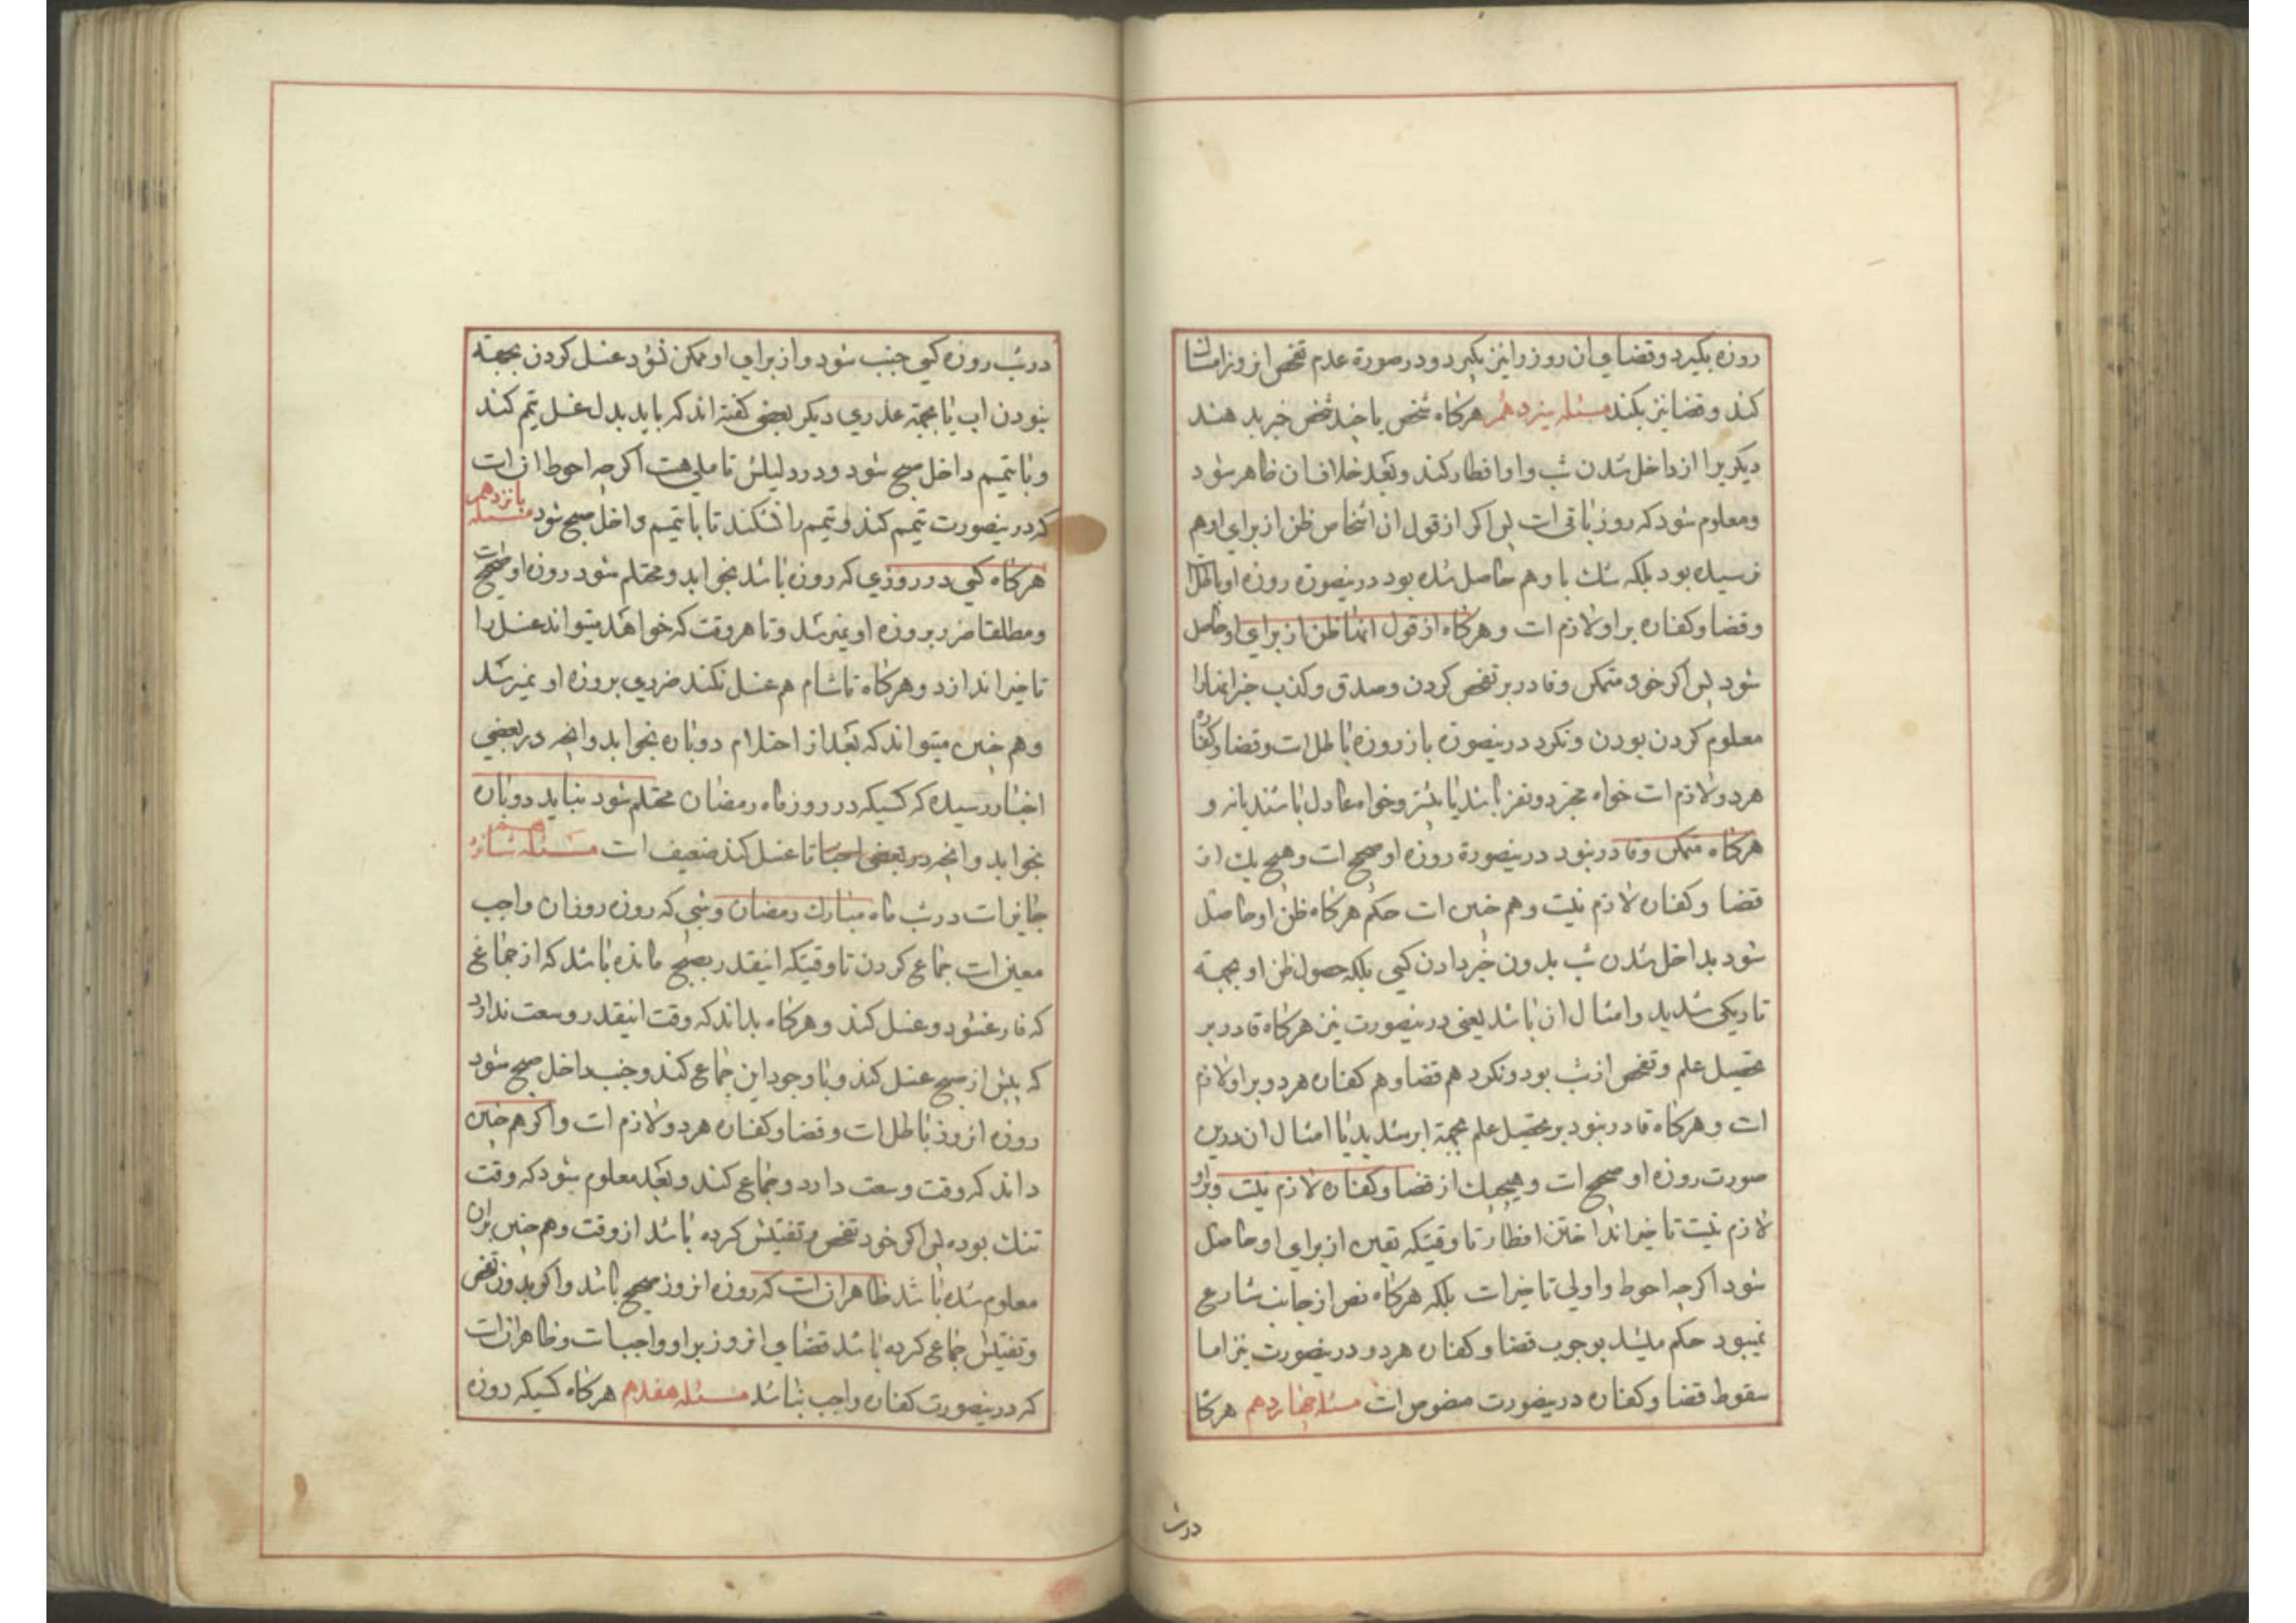 روزه بکیرد و قضای ان روز را نیز بکیرد و در صورة عدم تفحص انروز امساک
کند و قضا نیز بکند مسئله سیزدهم هرکاه شخص یا چند شخص خبر بدهند
دیکریرا از داخل شدن شب و او افطار کند و بعد خلاف ان ظاهر شود
و معلوم شود که روز باقی است پس اکر از قول ان اشخاص ظن از برای او هم
نرسیده بود بلکه شک یا وهم حاصل شده بود درینصورة روزه او باطل است
و قضا و کفاره بر او لازم است و هرکاه از قول انها ظن از برای او حاصل
شود پس اکر خود متمکن و قادر بر تفحص کردن و صدق و کذب خبر انها را
معلوم کردن بودن و نکرد درینصورة باز روزه باطل است و قضا و کفاره
هر دو لازم است خواه مخبر دو نفر باشند یا بیشتر و خواه عادل باشند یا نه و
هرکاه متمکن و قادر نبود درینصورة روزه او صحیح است و هیچ یک از
قضا و کفاره لازم نیست و هم چنین است حکم هرکاه ظن او حاصل
شود بداخل شدن شب بدون خبر دادن کسی بلکه حصول ظن او بجهة
تاریکی شدید و امثال ان باشد یعنی درینصورت نیز هرکاه قادر بر
تحصیل علم و تفحص از شب بود و نکرد هم قضا و هم کفاره هر دو بر او لازم
است و هرکاه قادر نبود بر تحصیل علم بجهة ابر شدید یا امثال ان درین
صورت روزه او صحیح است و هیچیک از قضا و کفاره لازم نیست و بر او
لازم نیست تاخیر انداختن افطار تا وقتیکه یقین از برای او حاصل
شود اکرچه احوط و اولی تاخیر است بلکه هرکاه نص از جانب شارع
نمیبود حکم میشد بوجوب قضا و کفاره هر دو درینصورت نیز اما
سقوط قضا و کفاره درینصورت منصوص است مسئله چهاردهم هرکاه
درشب
درشب روزه کسی جنب شود و از برای او ممکن نشود غسل کردن بجهة
نبودن اب یا بجهة عذری دیکر بعضی کفته اند که باید بدل غسل تیمم کند
و با تیمم داخل صبح شود و در دلیلش تاملی هست اکرچه احوط ان است
که درینصورت تیمم کند و تیمم را نشکند تا با تیمم داخل صبح شود مسئله پانزدهم
هرکاه کسی در روزی که روزه باشد بخوابد و محتلم شود روزه او صحیح است
و مطلقا ضرر بروزه او نمیرسد و تا هر وقت که خواهد میتواند غسل را
تاخیر اندازد و هرکاه تا شام هم غسل نکند ضرری بروزه او نمیرسد
و هم چنین میتواند که بعد از احتلام دوباره بخوابد و انچه در بعضی
اخبار رسیده که کسیکه در روز ماه رمضان محتلم شود نباید دوباره
بخوابد و انچه در بعضی اخبار تا غسل کند ضعیف است مسئله شانزدهم
جایز است در شب ماه مبارک رمضان و شبی که روزه روز ان واجب
معین است جماع کردن تا وقتیکه اینقدر بصبح مانده باشد که از جماع
که فارغ شود و غسل کند و هرکاه بداند که وقت اینقدر وسعت ندارد
که پیش از صبح غسل کند و با وجود این جماع کند و جنب داخل صبح شود
روزه انروز باطل است و قضا و کفاره هر دو لازم است و اکر هم چنین
داند که وقت وسعت دارد و جماع کند و بعد معلوم شود که وقت
تنک بوده پس اکر خود تفحص و تفتیش کرده باشد از وقت و هم چنین بر ان
معلوم شده باشد ظاهر ان است که روزه انروز صحیح باشد و اکر بدون تفحص
و تفتیش جماع کرده باشد قضای انروز بر او واجب است و ظاهر ان است
که درینصورت کفاره واجب نباشد مسئله هفدهم هرکاه کسیکه روزه